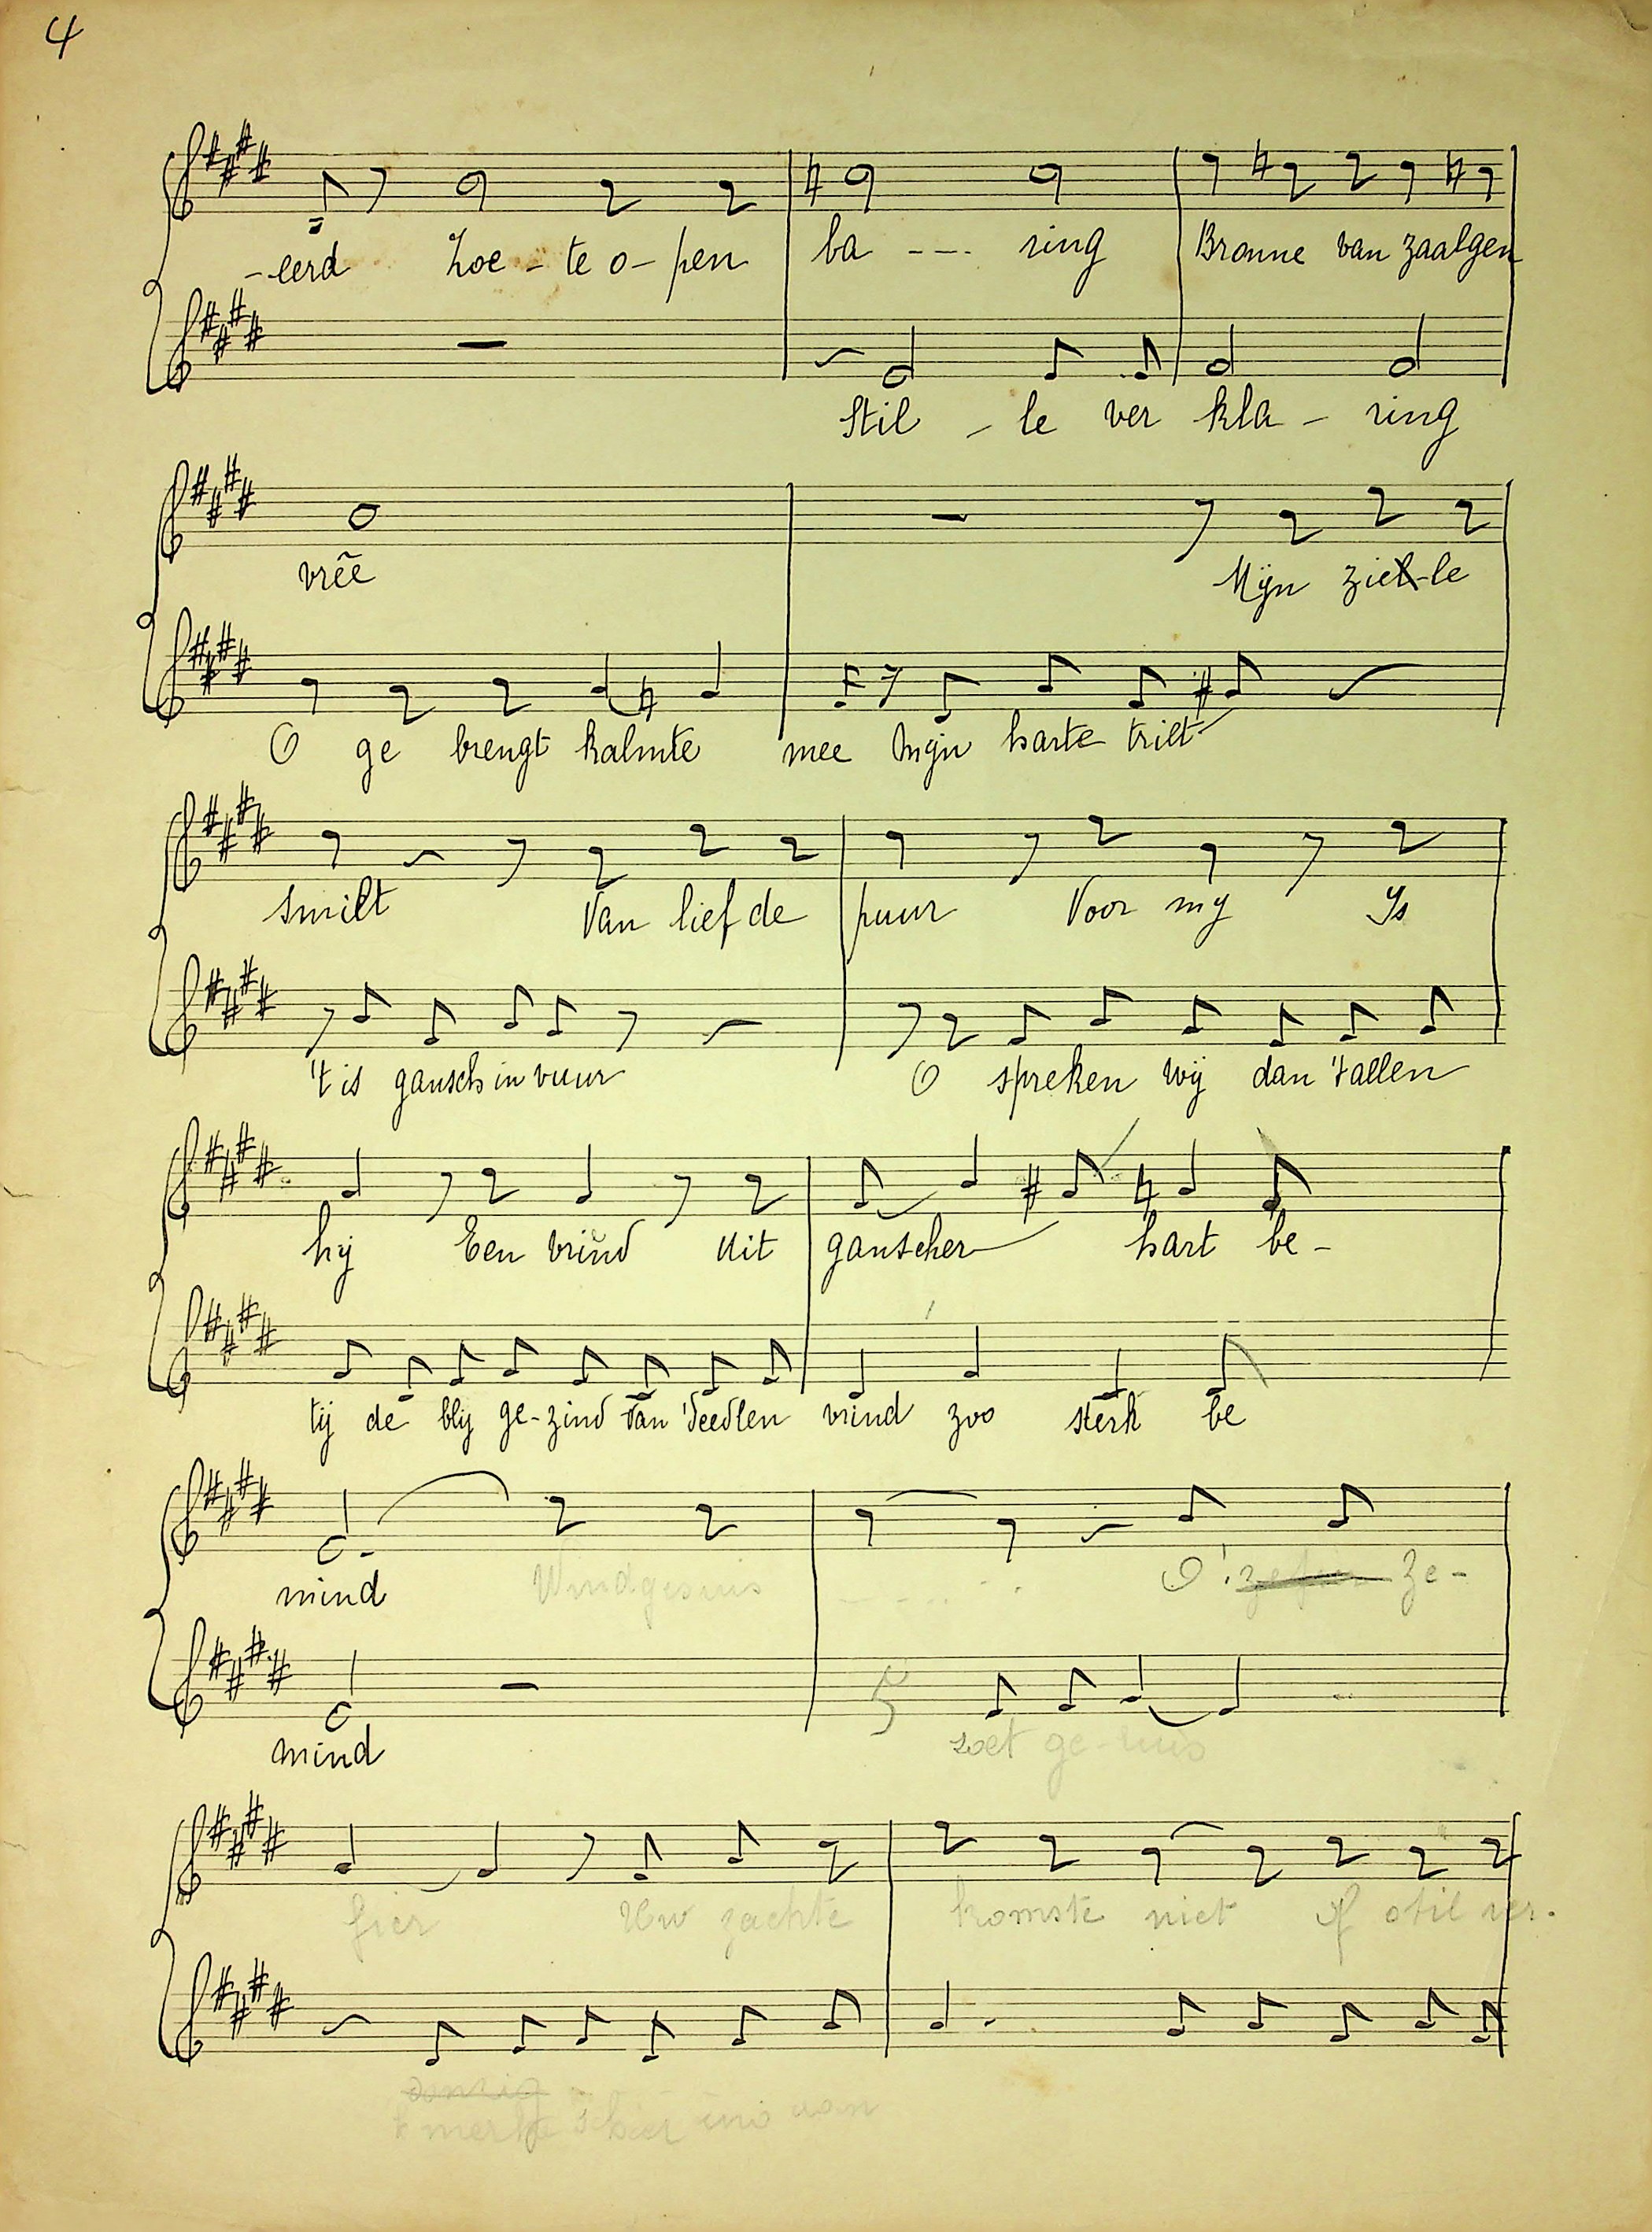 4
-eerd Zoe - te o - pen ba - - - - ring Bronne van zaalgen
Stil - le ver kla - ring
vrêe Mijn ziel-le
O ge brengt kalmte mee Mijn harte trilt
smilt Van liefde puur Voor my Is
't is gansch in vuur O spreken wij dan 't allen
hij Een vrind Uit ganscher hart be -
tij de blij ge-zind van 'deedlen vrind zoo sterk be
mind Windgesuis - - - . . . . O! Ze-
mind zoet ge-
fier Uw zachte komste niet Of stil ver.
't merke